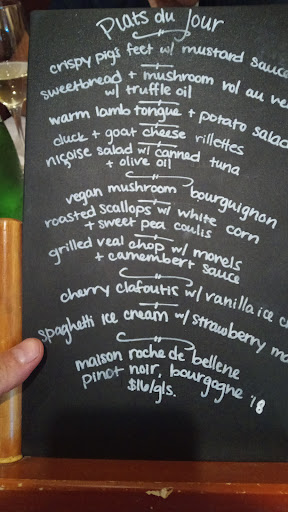 Plats du Jour
crispy pig's feet w/ mustard sauce
sweetbread + mushroom vol au ve
w/ truffle oil
warm lamb tongue + potato salad
duck + goat cheese rillettes
niçoise salad w/ canned tuna
+ olive oil
vegan mushroom bourguignon
roasted scallops w/ white corn
+ sweet pea coulis
grilled veal chop w/ morels
+ camembert sauce
cherry clafoutis w/ vanilla ice c
spaghetti ice cream w/ strawberry ma
maison roche de bellene
pinot noir, bourgogne '18
$16/gls.